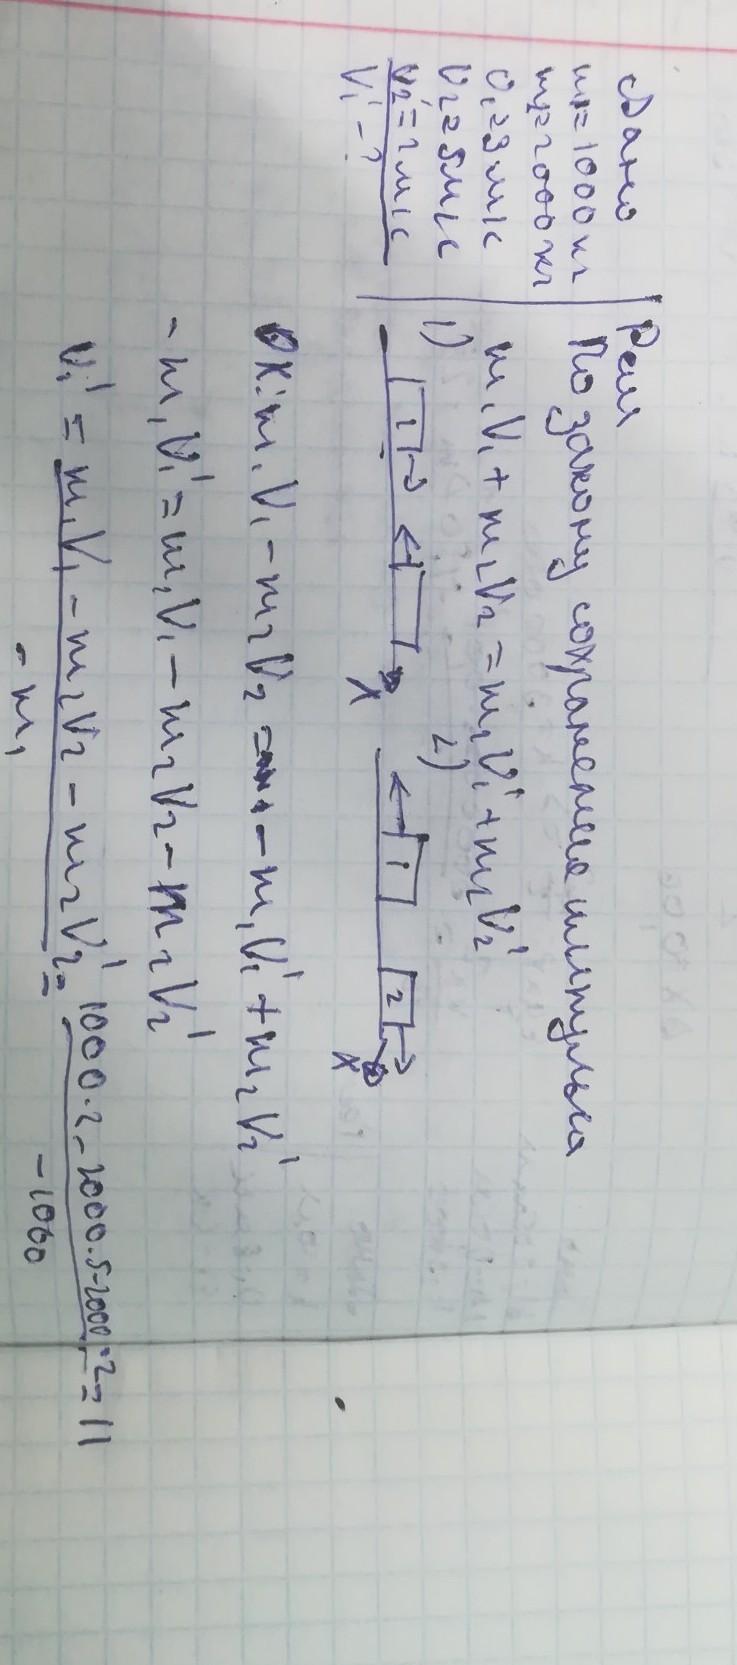 Дано
m₁=1000кг
m₂=2000кг
υ₁=3м/с
υ₂=5м/с
υ₂'=2м/с
V₁'-?
Реш
По закону сохранения импульса
m₁V₁+m₂V₂=m₁V₁'+m₂V₂'
1)
1
X
2)
1
2
X
OX: m₁V₁-m₂V₂=-m₁V₁'+m₂V₂'
-m₁V₁'=m₁V₁-m₂V₂-m₂V₂'
V₁'=m₁V₁-m₂V₂-m₂V₂'/-m₁=1000·2-2000·5-2000·2/-1000=11